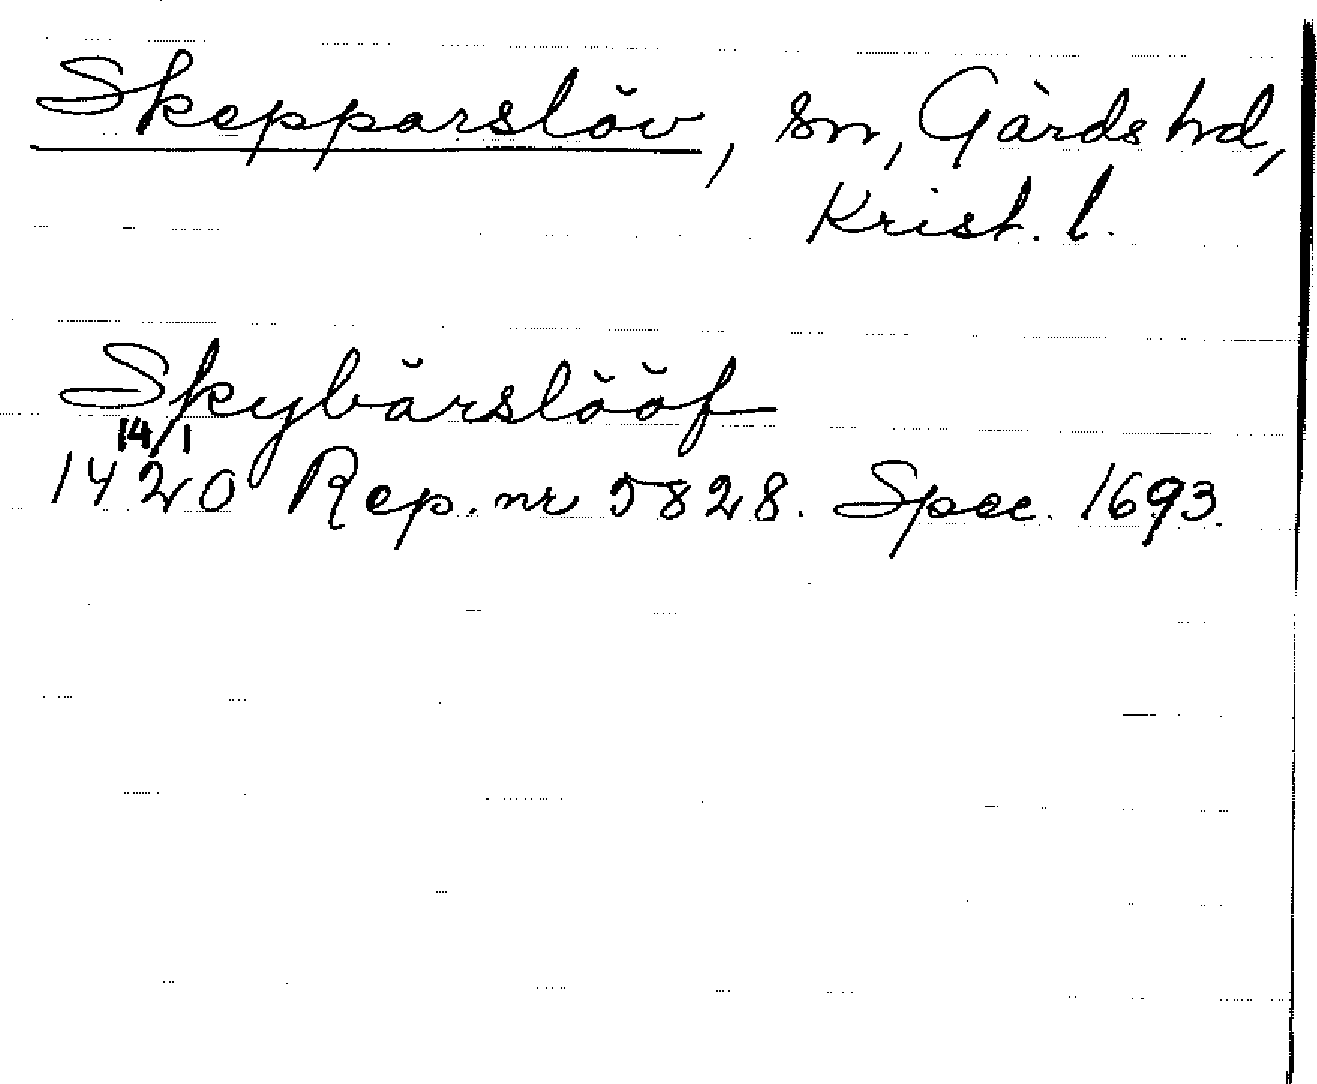 Skepparslöv, sn, Gärds hd,
Krist. l.
Skybärslööf
14/1
1420 Rep. nr 5828. Spec. 1693.